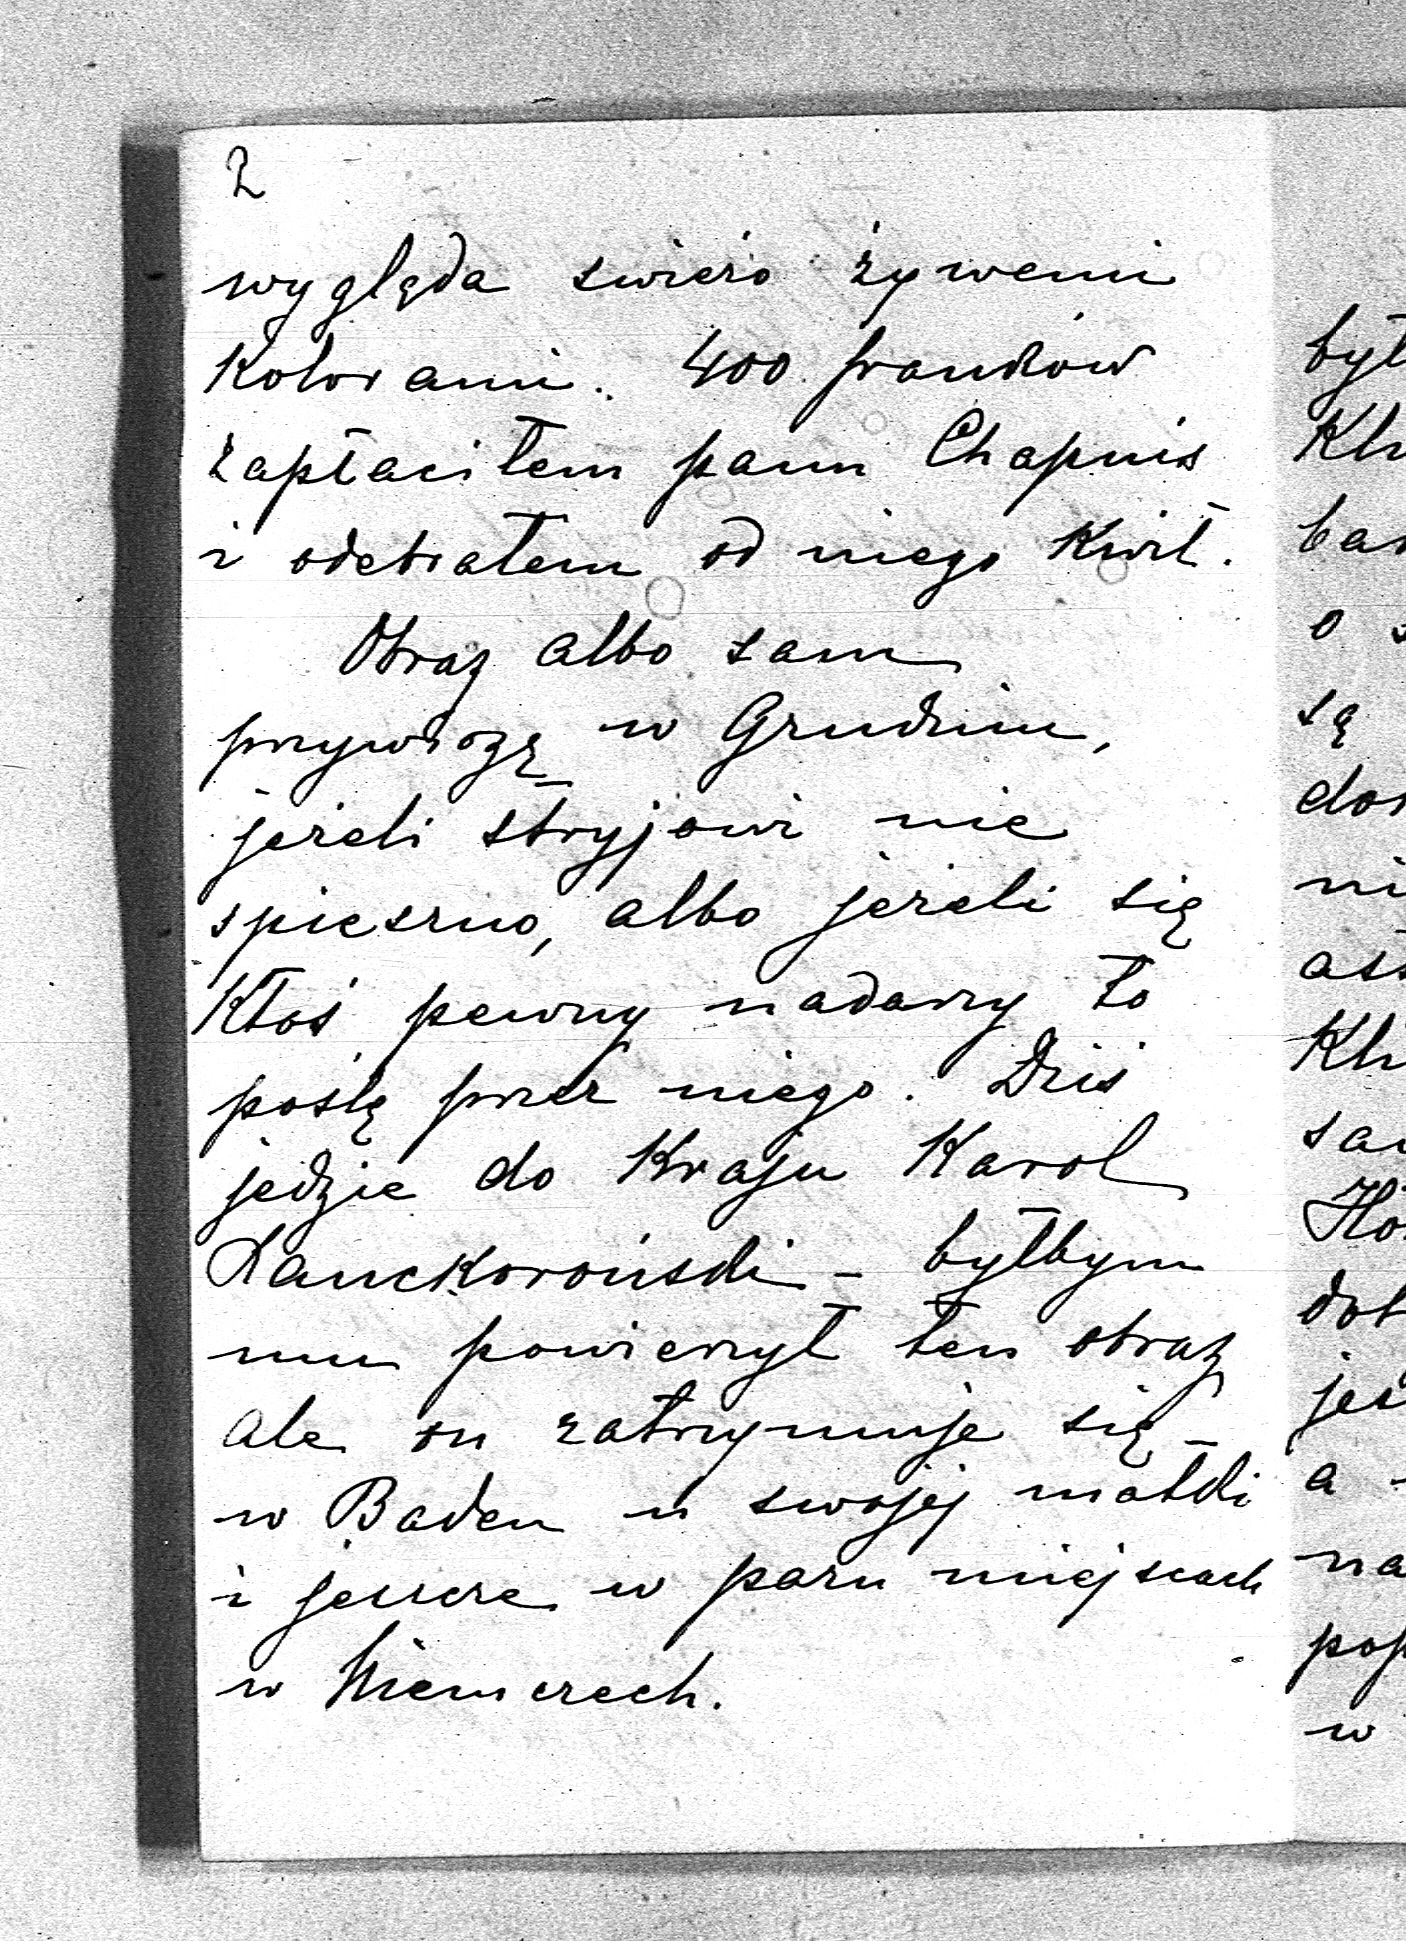 2
wygląda swieżo żywemi
kolorami. 400 franków
zapłaciłem panu Chapuis
i odebrałem od niego kwit.
Obraz albo sam
przywiozę w Grudniu,
jeżeli stryjowi nie
spieszno, albo jeżeli się
ktoś pewny nadarzy to
poślę przez niego. Dziś
jedzie do Kraju Karol
Lanckoroński – byłbym
mu powierzył ten obraz
ale on zatrzymuje się
w Baden u swojej matki
i jeszcze w paru miejscach
w Niemczech.
był
o
są
a
na
w